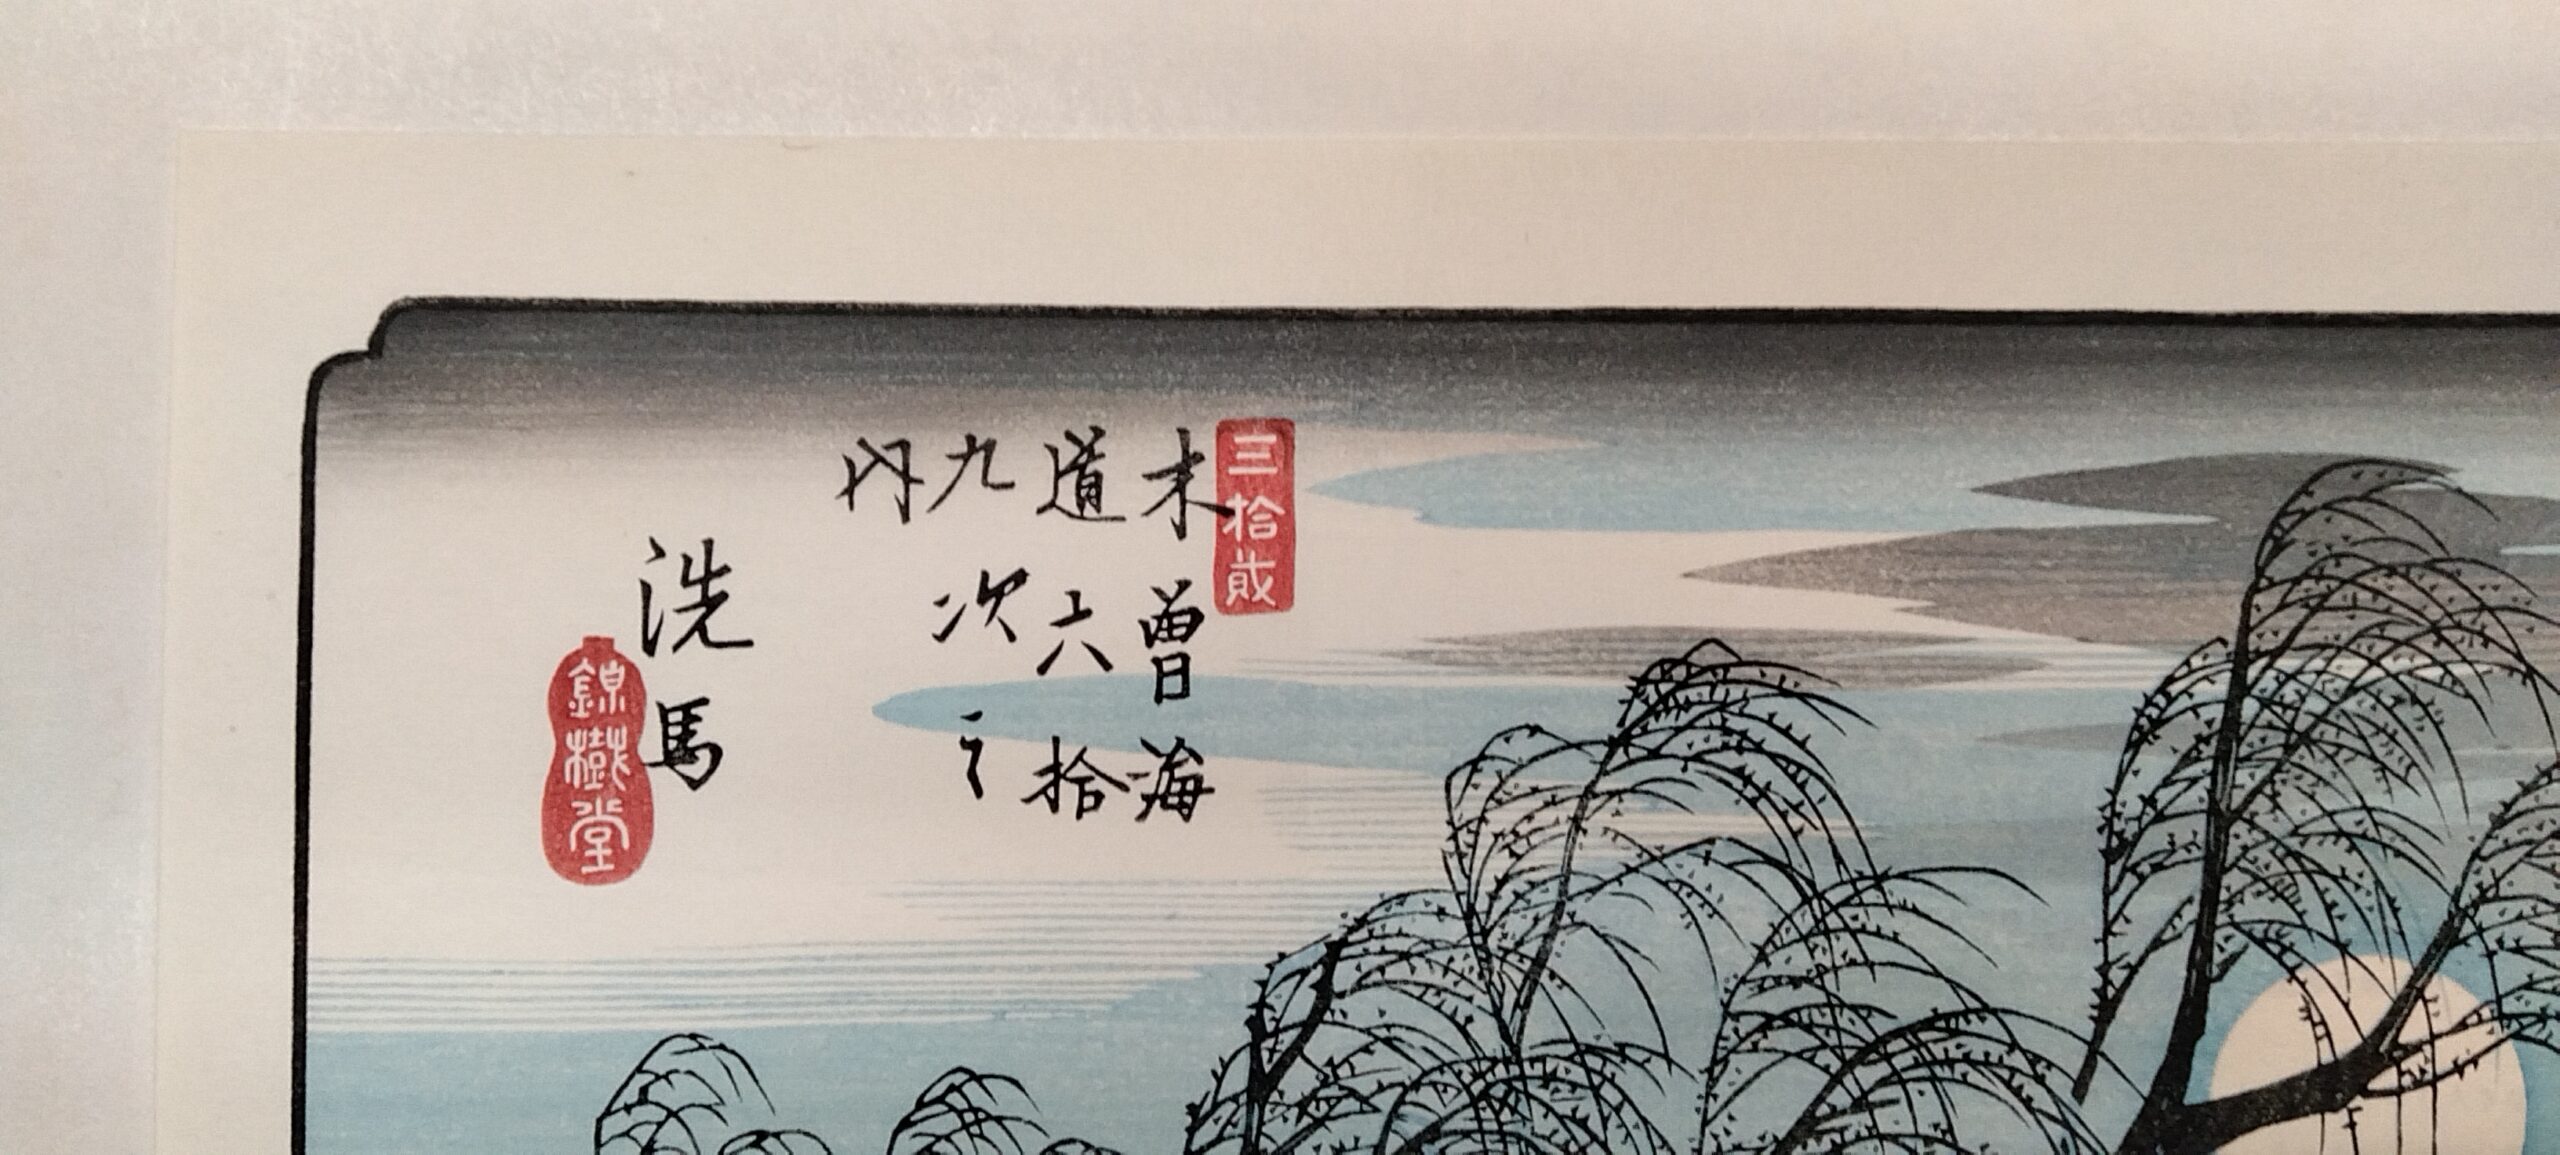 三拾弐
木曽海
道六拾
九次之
内
洗馬
錦樹堂